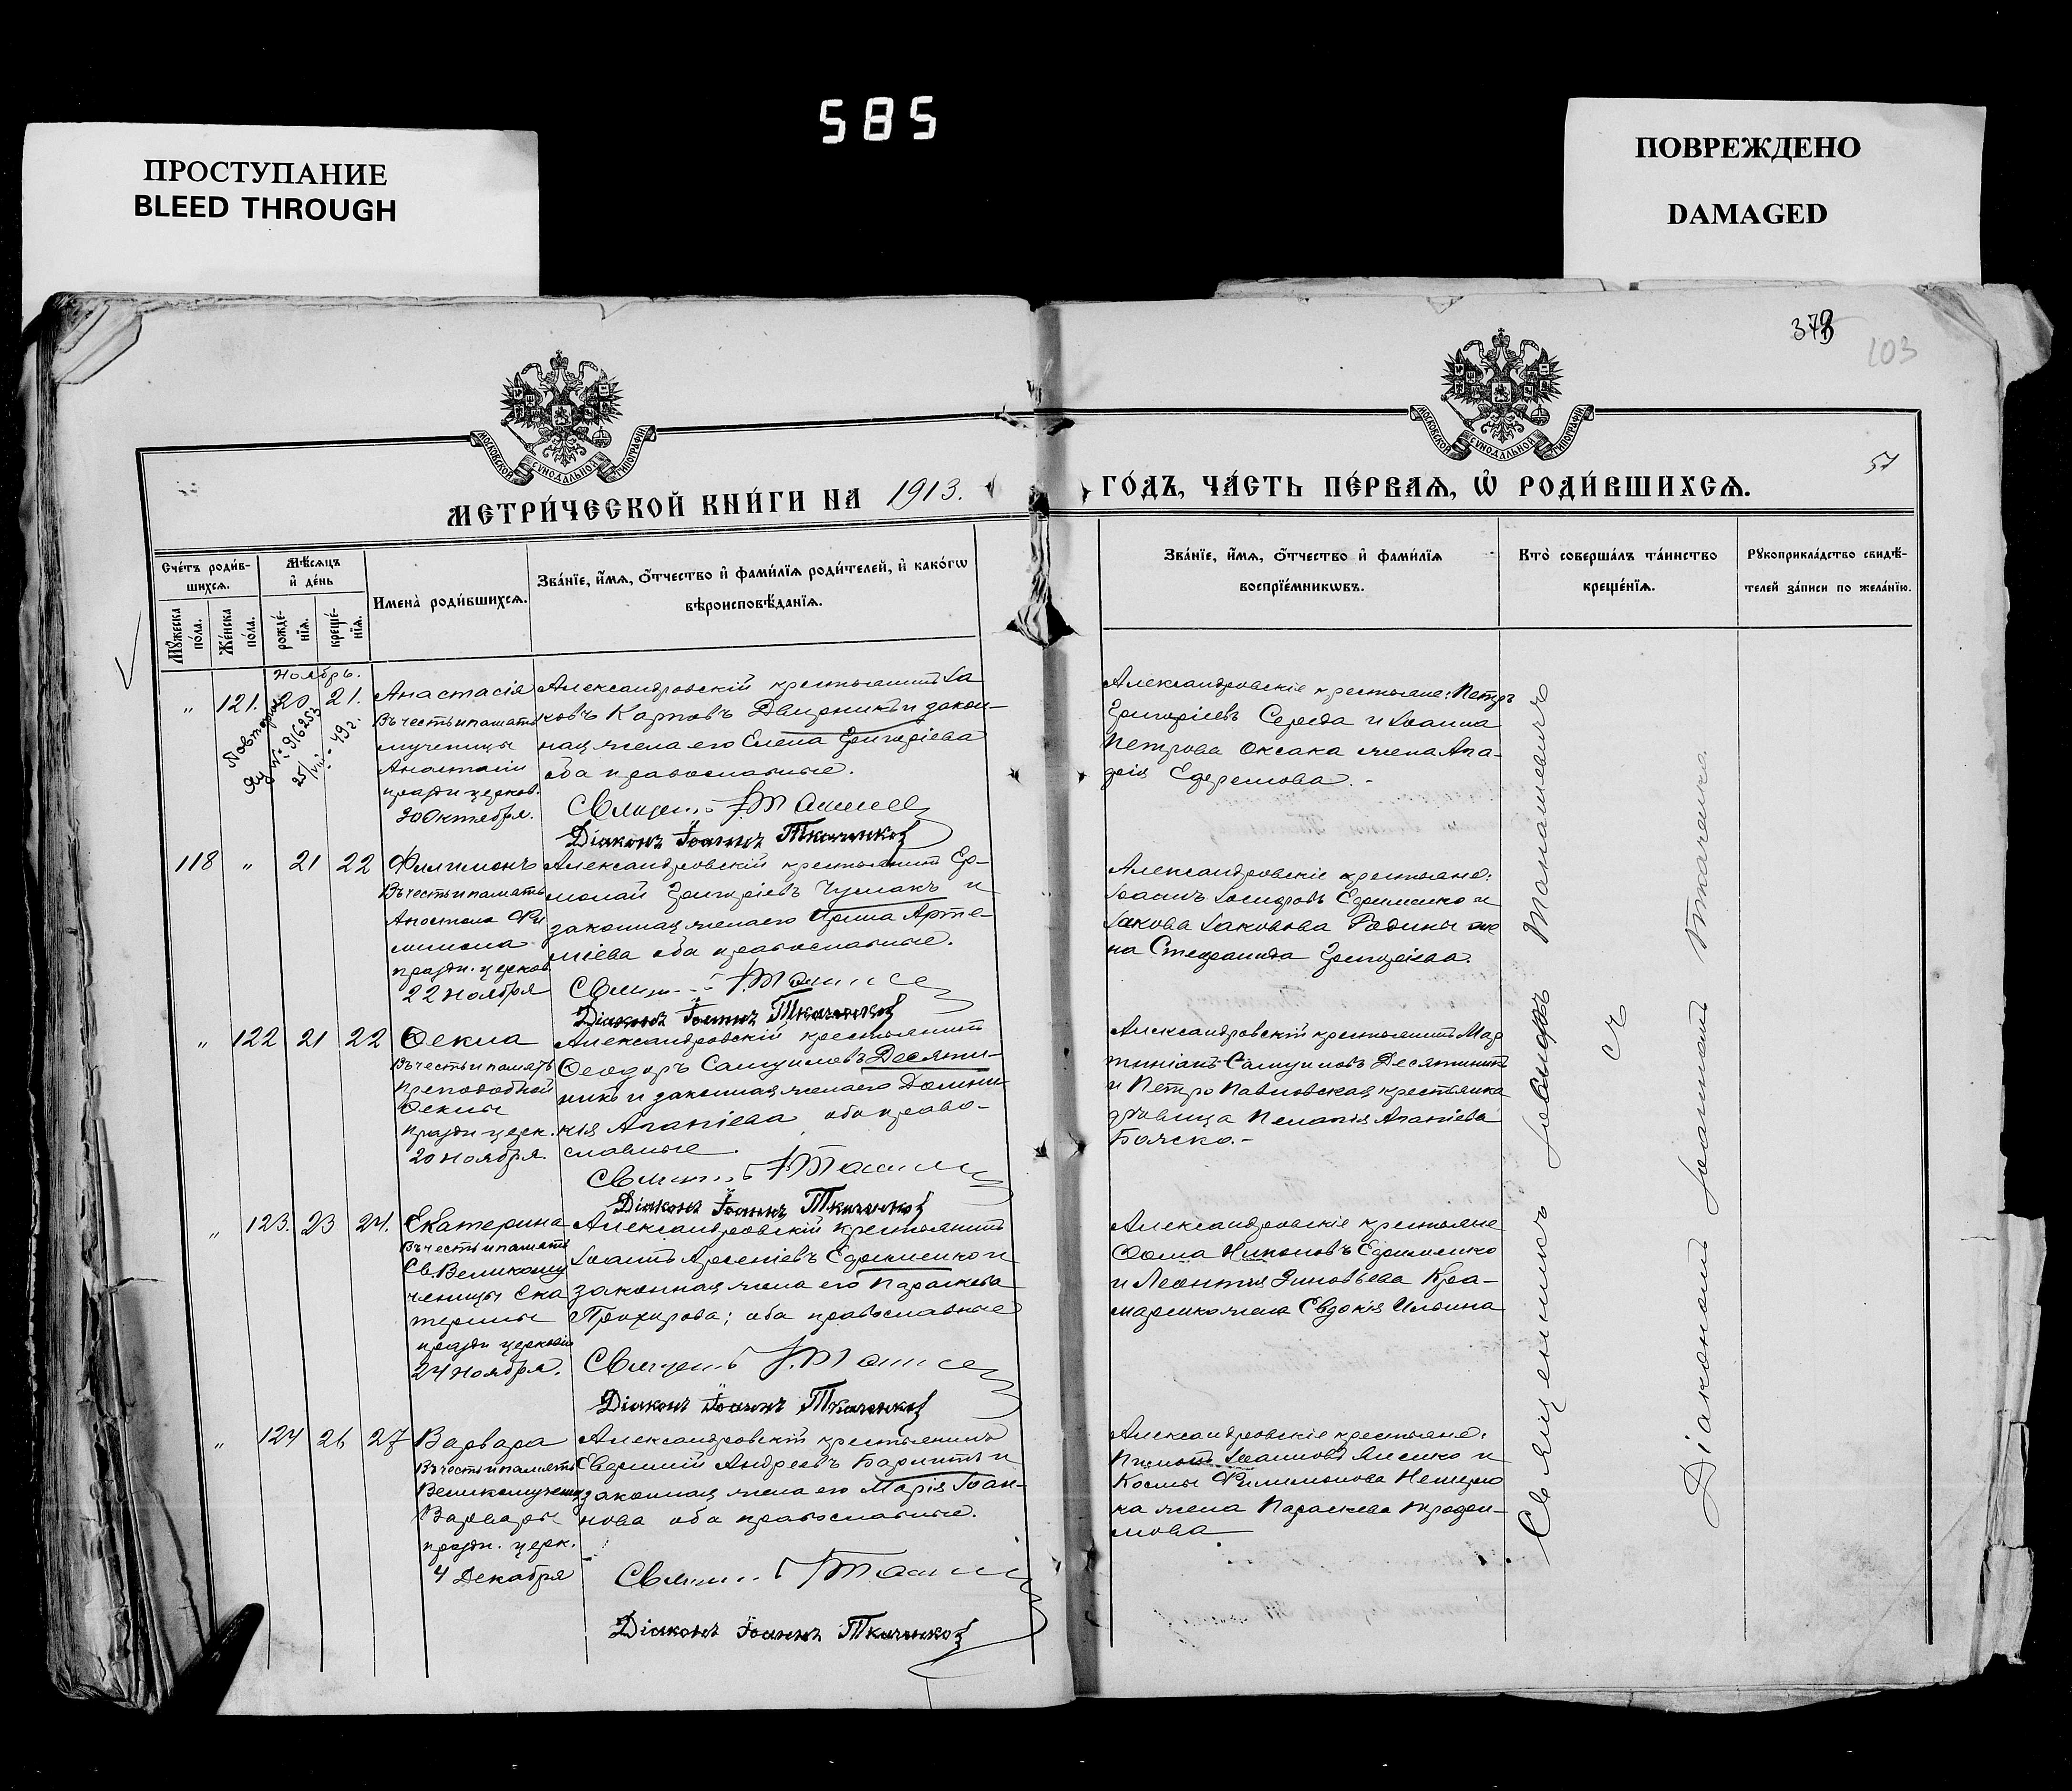 585
ПРОСТУПАНИЕ
BLEED THROUGH
ПОВРЕЖДЕНО
DAMAGED
103
57
МОСКОВСКОЙ СУНОДАЛЬНОЙ ТИПОГРАФІИ
МОСКОВСКОЙ СУНОДАЛЬНОЙ ТИПОГРАФІИ
МЕТРИ́ЧЕСКОЙ КНИ́ГИ НА 1913.
ГО́ДЪ, ЧА́СТЬ ПЕ́РВАѦ, Ѡ҆ РОДИ́ВШИХСѦ.
Сче́тъ роди́в-
шихсѧ.
Мꙋ́жеска по́ла.
Же́нска по́ла.
Мѣ́сѧцъ
и҆ де́нь
рожде́-
нїѧ.
креще́-
нїѧ.
Имена̀ роди́вшихсѧ.
Зва́нїе, и҆́мѧ, ѻ҆́тчество и҆ фами́лїѧ роди́телей, и҆ како́гѡ
вѣроисповѣ́данїѧ.
Зва́нїе, и҆́мѧ, ѻ҆́тчество и҆ фами́лїѧ
воспрїе́мникѡвъ.
Кто̀ соверша́лъ та́инство
креще́нїѧ.
Рꙋкоприкла́дство свидѣ́-
телей за́писи по жела́нїю.
Ноябрь.
" 121. 20 21.
Анастасія
Въ честь и память
мученицы
Анастасіи
праздн. церков.
30 Октября.
Александровскій крестьянинъ Іа-
ковъ Карповъ Дворникъ и закон-
ная жена его Елена Григоріева
оба православные.
Діаконъ Іоаннъ Ткаченко
Александровскіе крестьяне: Петръ
Григоріевъ Середа и Іоанна
Петрова Оксака жена Ага-
фія Ефремова.-
118 " 21 22
Филимонъ
Въ честь и память
Апостола Фи
лимона
праздн. церков.
22 Ноября
Александровскій крестьянинъ Ер-
молай Григоріевъ Чумакъ и
законная жена его Ирина Арте-
міева оба православные.
Діаконъ Іоаннъ Ткаченко
Александровскіе крестьяне:
Іоаннъ Іосифовъ Ефименко и
Іакова Іаковова Родины же
на Стефанида Григоріева.
" 122 21 22
Ѳекла
Въ честь и память
преподобной
Ѳеклы
праздн. церк.
20 Ноября.
Александровскій крестьянинъ
Ѳеодоръ Самуиловъ Десятни-
никъ и законная жена его Домни-
кія Ананіева оба право-
славные.
Діаконъ Іоаннъ Ткаченко
Александровскій крестьянинъ Мар
тиніанъ Самуиловъ Десятникъ
и Петро Павловская крестьянка
дѣвица Пелагія Ананіева
" 123. 23 24.
Екатерина
Въ честь и память
Св. Великому
ченицы Ека
терины
праздн. церковію
24 Ноября.
Александровскій крестьянинъ
Іоаннъ Арсеніевъ Ефименко и
законная жена его Параскева
Прохорова; оба православные
Діаконъ Іоаннъ Ткаченко
Александровскіе крестьяне
Ѳома Никоновъ Ефименко
и Леонтія Зиновьева Кра-
маренко жена Евдокія Ильина
" 124 26 27
Варвара
Въ честь и память
Великомучениц
Варвары
праздн. церк.
4 Декабря
Александровскій крестьянинъ
Евфимій Андреевъ Баринтъ и
законная жена его Марія Іоан-
нова оба православные.
Діаконъ Іоаннъ Ткаченко
Александровскіе крестьяне:
Космы Филимонова
жена Параскева Трофи-
мова
Священникъ Іосифъ Танашевичъ
съ
Діакономъ Іоанномъ Ткаченко